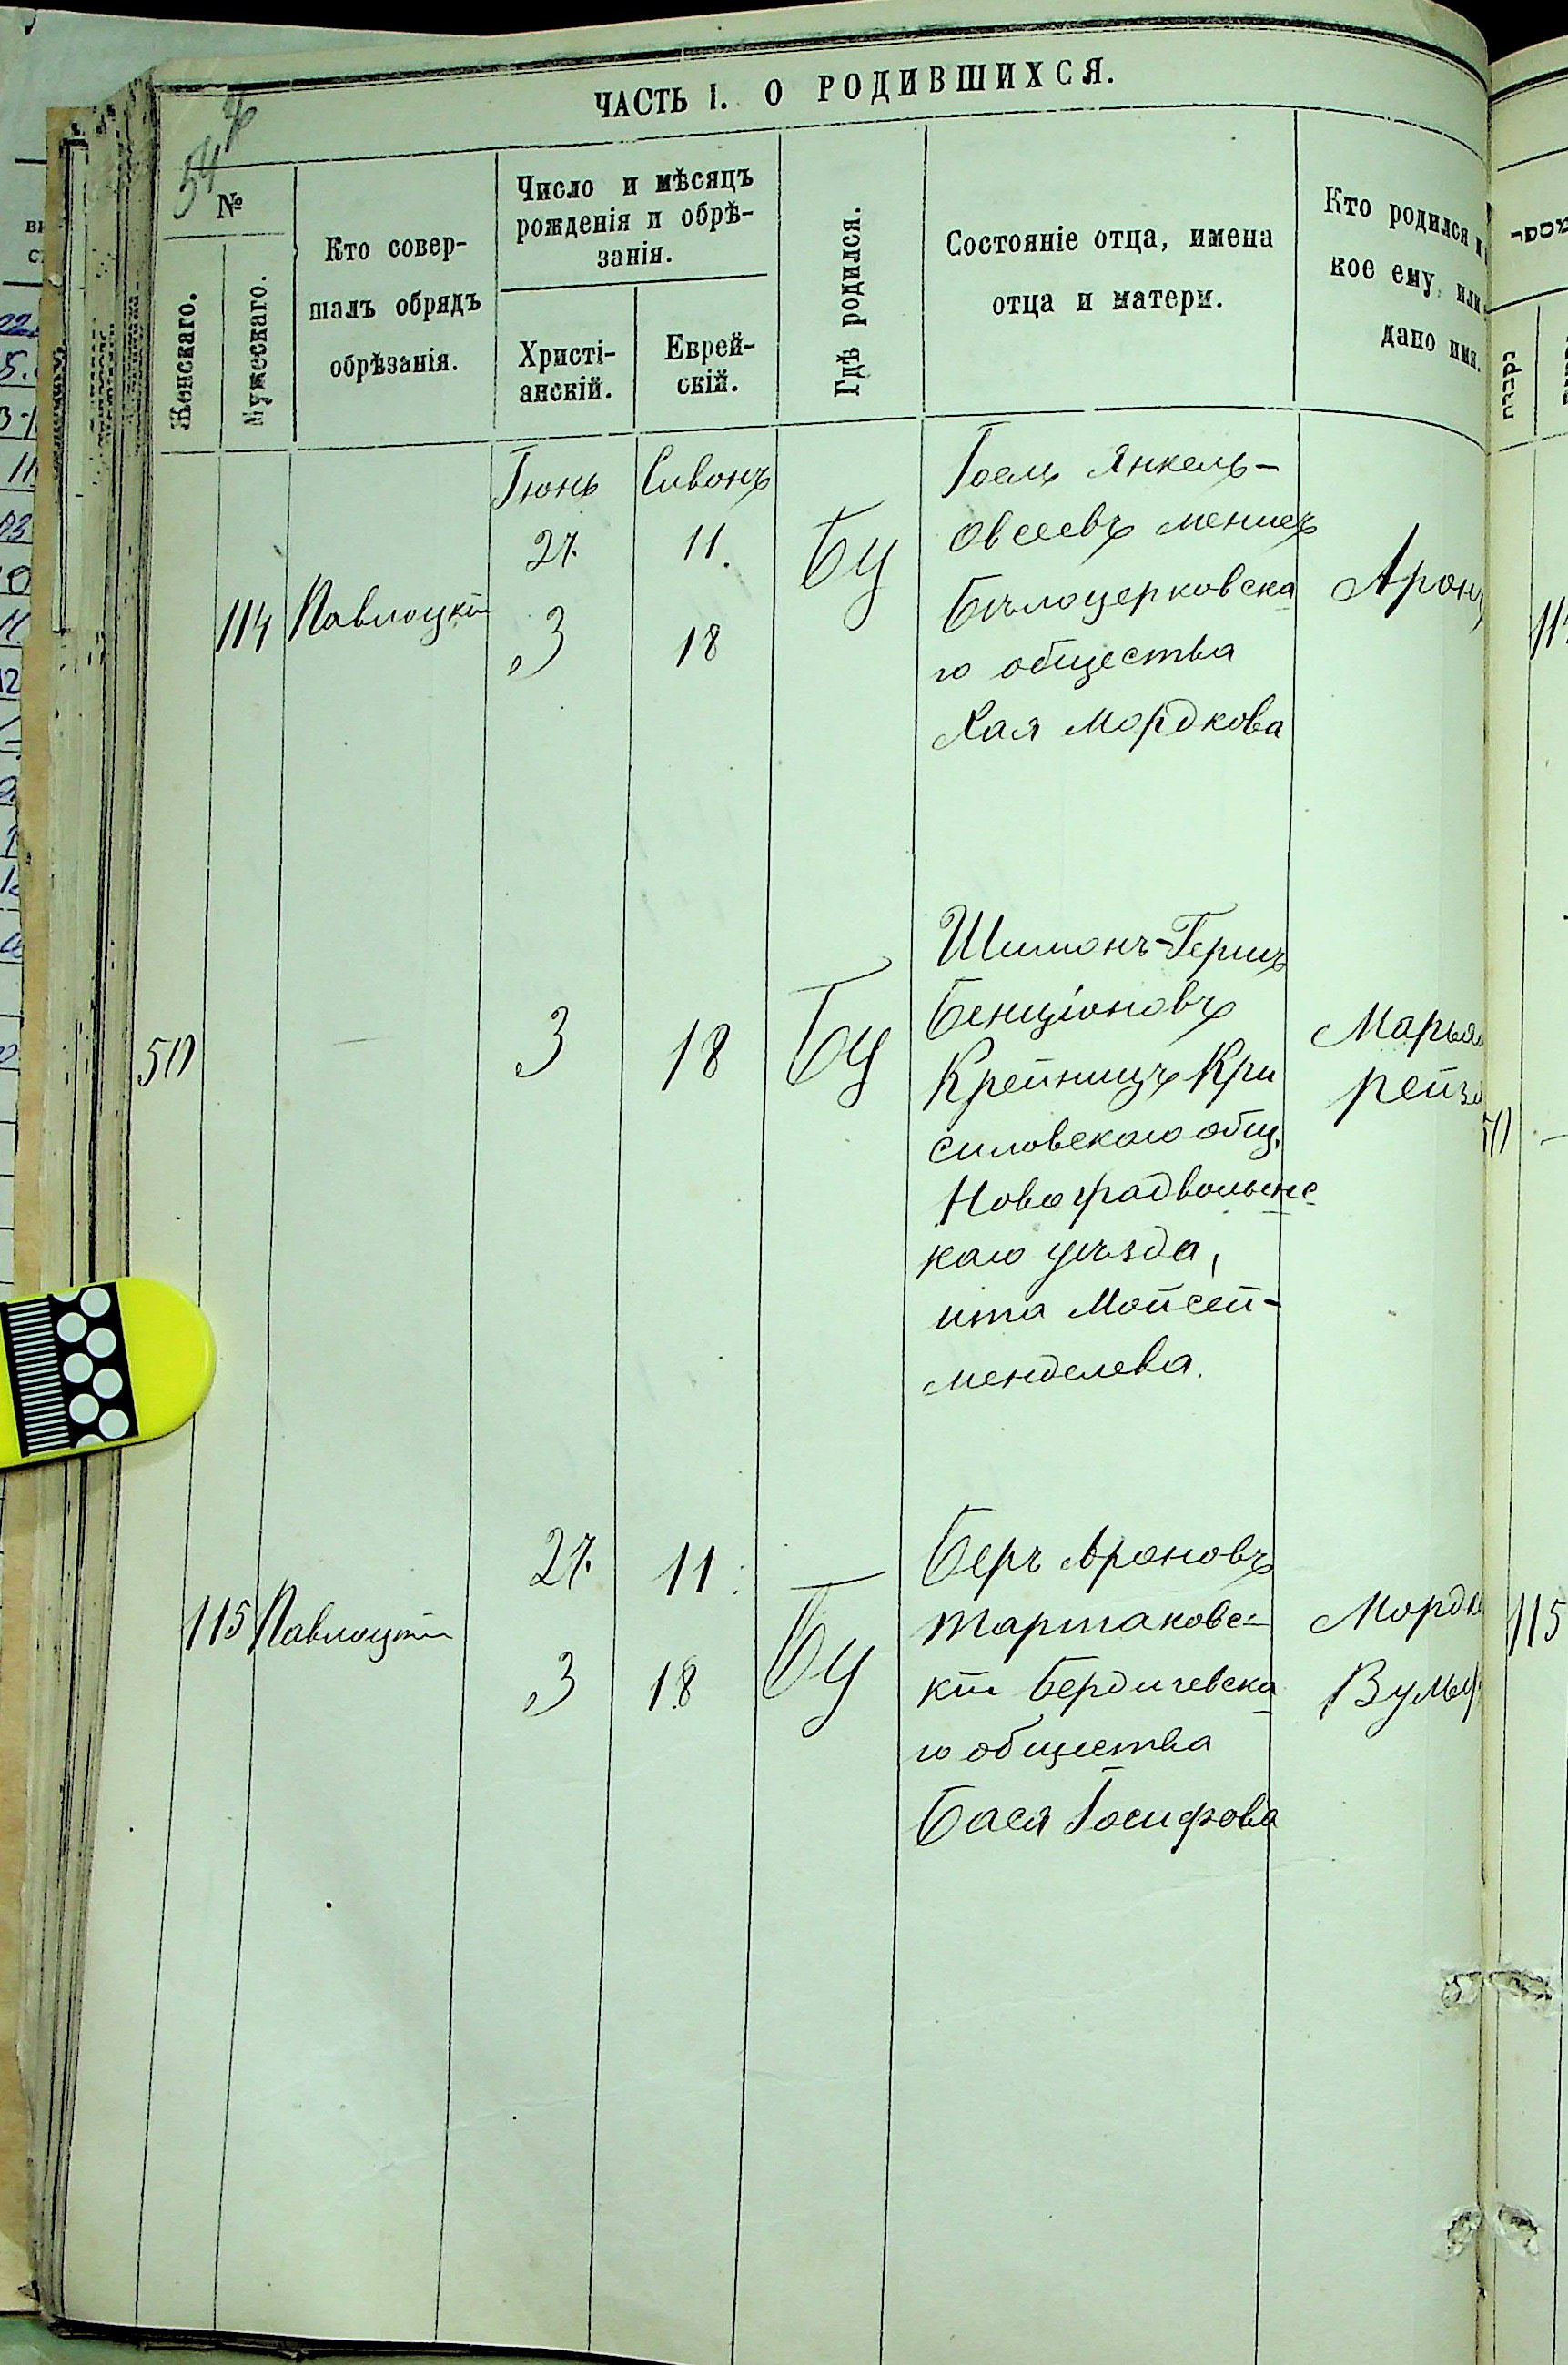 ЧАСТЬ I. О РОДИВШИХСЯ.
54
№
Женскаго.
Мужескаго.
Кто совер-
шалъ обрядъ
обрѣзанія.
Число и мѣсяцъ
рожденія и обрѣ-
занія.
Христі-
анскій.
Еврей-
скій.
Гдѣ родился.
Состояніе отца, имена
отца и матери.
Кто родился и
кое ему, или
дано имя.
114
Павлоцкій
Іюнь
27.
3
Сивонъ
11.
18
БЦ
Іоель Янкель-
Овсеевъ менчез
Бѣлоцерковска
го общества
Хая Мордкова
Аронъ
50
3
18
БЦ
Шимонъ-Гершъ
Бенціоновъ
Крейницъ Кри
силовскаго общ.
Новоградволынс
каго уѣзда,
ита Мойсей-
менделева.
Марьям
рейза
115
Павлоцкій
27.
3
11.
18
БЦ
Беръ Ароновъ
Тартаковс-
кій Бердичевска
го общества
Бася Іосифова
Мордк
Вульф
50
115